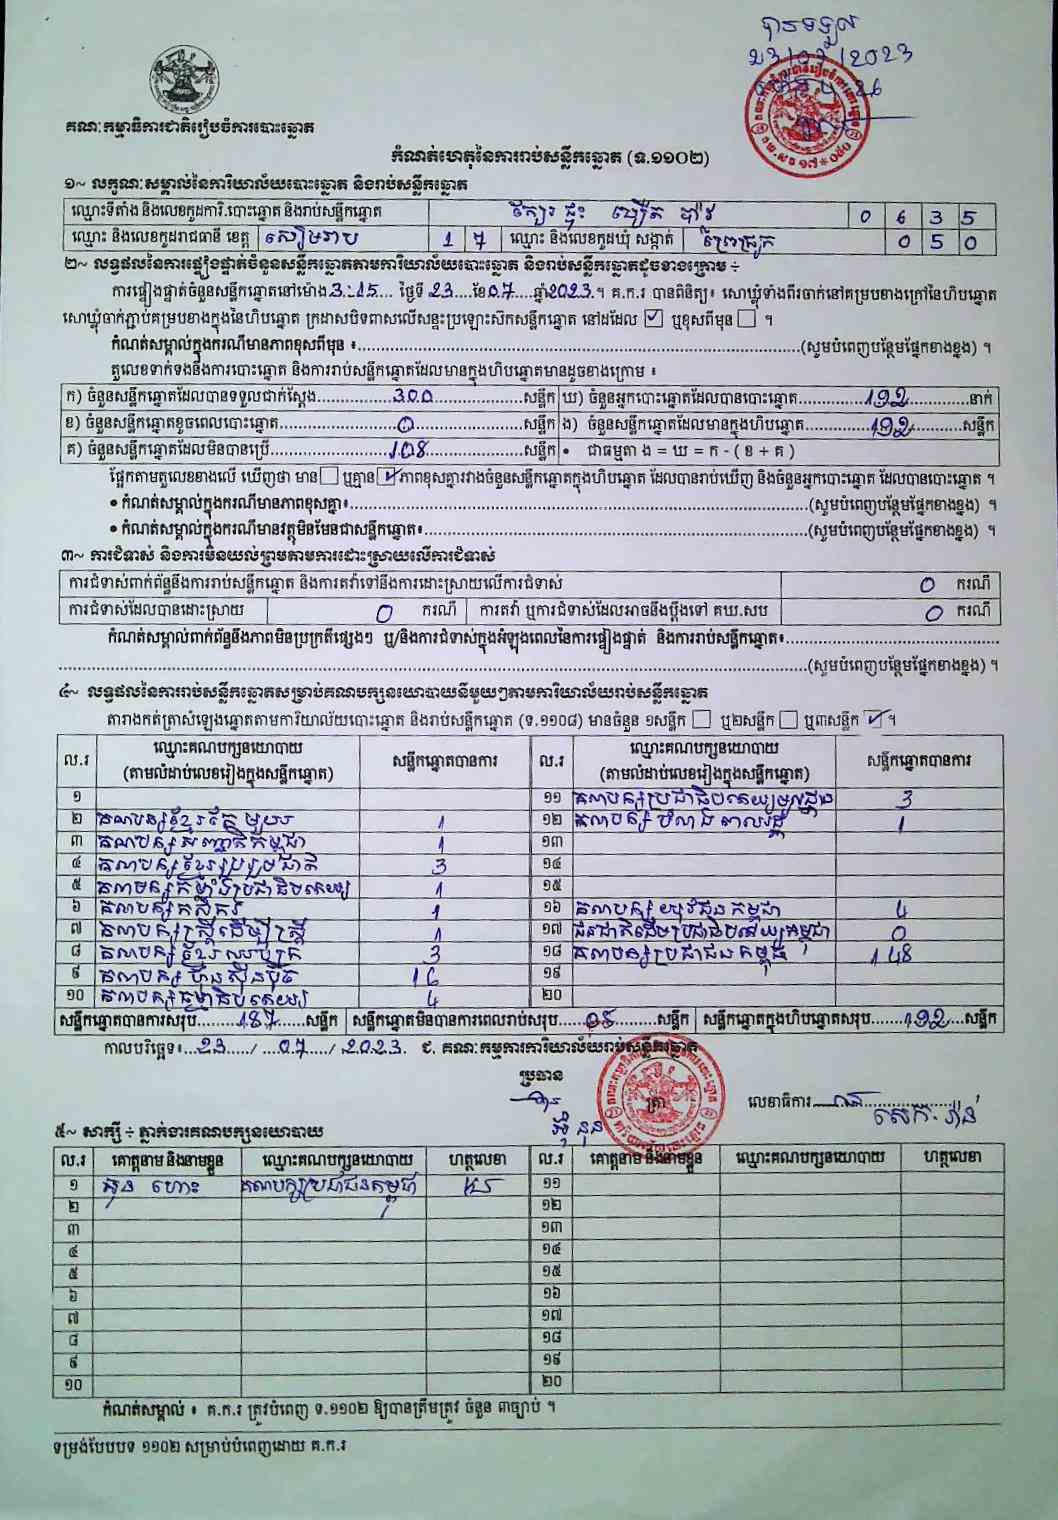 បានទទួល
23/07/2023
គណៈកម្មាធិការជាតិរៀបចំការបោះឆ្នោត
កំណត់ហេតុនៃការរាប់សន្លឹកឆ្នោត (ទ.១១០២)
១~ លក្ខណៈសម្គាល់នៃការិយាល័យបោះឆ្នោត និងរាប់សន្លឹកឆ្នោត
ឈ្មោះទីតាំង និងលេខកូដការិ.បោះឆ្នោត និងរាប់សន្លឹកឆ្នោត 0 6 3 5
ឈ្មោះ និងលេខកូដរាជធានី ខេត្ត សៀមរាប 1 7 ឈ្មោះ និងលេខកូដឃុំ សង្កាត់ ព្រៃជ្រូក 0 5 0
២~ លទ្ធផលនៃការផ្ទៀងផ្ទាត់ចំនួនសន្លឹកឆ្នោតតាមការិយាល័យបោះឆ្នោត និងរាប់សន្លឹកឆ្នោតដូចខាងក្រោម ÷
ការផ្ទៀងផ្ទាត់ចំនួនសន្លឹកឆ្នោតនៅម៉ោង 3:15 ថ្ងៃទី 23 ខែ 07 ឆ្នាំ 2023 ។ គ.ក.រ បានពិនិត្យ៖ សោឃ្លុំទាំងពីរចាក់នៅគម្របខាងក្រៅនៃហិបឆ្នោត
សោឃ្លុំចាក់ភ្ជាប់គម្របខាងក្នុងនៃហិបឆ្នោត ក្រដាសបិទពាសលើសន្ទះប្រឡោះសឹកសន្លឹកឆ្នោត នៅដដែល ☑ ឬខុសពីមុន ☐ ។
កំណត់សម្គាល់ក្នុងករណីមានភាពខុសពីមុន ៖ (សូមបំពេញបន្ថែមផ្នែកខាងខ្នង) ។
តួលេខទាក់ទងនឹងការបោះឆ្នោត និងការរាប់សន្លឹកឆ្នោតដែលមានក្នុងហិបឆ្នោតមានដូចខាងក្រោម ៖
ក) ចំនួនសន្លឹកឆ្នោតដែលបានទទួលជាក់ស្តែង 300 សន្លឹក ឃ) ចំនួនអ្នកបោះឆ្នោតដែលបានបោះឆ្នោត 192 នាក់
ខ) ចំនួនសន្លឹកឆ្នោតខូចពេលបោះឆ្នោត 0 សន្លឹក ង) ចំនួនសន្លឹកឆ្នោតដែលមានក្នុងហិបឆ្នោត 192 សន្លឹក
គ) ចំនួនសន្លឹកឆ្នោតដែលមិនបានប្រើ 108 សន្លឹក • ជាធម្មតា ង = ឃ = ក - ( ខ + គ )
ផ្អែកតាមតួលេខខាងលើ ឃើញថា មាន ☐ ឬគ្មាន ☑ ភាពខុសគ្នារវាងចំនួនសន្លឹកឆ្នោតក្នុងហិបឆ្នោត ដែលបានរាប់ឃើញ និងចំនួនអ្នកបោះឆ្នោត ដែលបានបោះឆ្នោត ។
• កំណត់សម្គាល់ក្នុងករណីមានភាពខុសគ្នា៖ (សូមបំពេញបន្ថែមផ្នែកខាងខ្នង) ។
• កំណត់សម្គាល់ក្នុងករណីមានវត្ថុមិនមែនជាសន្លឹកឆ្នោត៖ (សូមបំពេញបន្ថែមផ្នែកខាងខ្នង) ។
៣~ ការជំទាស់ និងការមិនយល់ព្រមតាមការដោះស្រាយលើការជំទាស់
ការជំទាស់ពាក់ព័ន្ធនឹងការរាប់សន្លឹកឆ្នោត និងការតវ៉ាទៅនឹងការដោះស្រាយលើការជំទាស់ 0 ករណី
ការជំទាស់ដែលបានដោះស្រាយ 0 ករណី ការតវ៉ា ឬការជំទាស់ដែលអាចនឹងប្តឹងទៅ គឃ.សប 0 ករណី
កំណត់សម្គាល់ពាក់ព័ន្ធនឹងភាពមិនប្រក្រតីផ្សេងៗ ឬ/និងការជំទាស់ក្នុងអំឡុងពេលនៃការផ្ទៀងផ្ទាត់ និងការរាប់សន្លឹកឆ្នោត៖
(សូមបំពេញបន្ថែមផ្នែកខាងខ្នង) ។
៤~ លទ្ធផលនៃការរាប់សន្លឹកឆ្នោតសម្រាប់គណបក្សនយោបាយនីមួយៗតាមការិយាល័យរាប់សន្លឹកឆ្នោត
តារាងកត់ត្រាសំឡេងឆ្នោតតាមការិយាល័យបោះឆ្នោត និងរាប់សន្លឹកឆ្នោត (ទ.១១០៨) មានចំនួន ១សន្លឹក ☐ ឬ២សន្លឹក ☐ ឬ៣សន្លឹក ☑ ។
ល.រ ឈ្មោះគណបក្សនយោបាយ (តាមលំដាប់លេខរៀងក្នុងសន្លឹកឆ្នោត) សន្លឹកឆ្នោតបានការ ល.រ ឈ្មោះគណបក្សនយោបាយ (តាមលំដាប់លេខរៀងក្នុងសន្លឹកឆ្នោត) សន្លឹកឆ្នោតបានការ
១ ១១ គណបក្សប្រជាធិបតេយ្យមូលដ្ឋាន 3
២ គណបក្សខ្មែរតែមួយ 1 ១២ គណបក្ស បំលាង 1
៣ គណបក្ស សញ្ជាតិកម្ពុជា 1 ១៣
៤ គណបក្សខ្មែររួបរួមជាតិ 3 ១៤
៥ គណបក្សកម្លាំងប្រជាធិបតេយ្យ 1 ១៥
៦ គណបក្សកសិករ 1 ១៦ គណបក្ស យុវជនកម្ពុជា 4
៧ គណបក្សស្ត្រីដើម្បីស្ត្រី 1 ១៧ ជនជាតិដើមប្រជាធិបតេយ្យកម្ពុជា 0
៨ គណបក្សខ្មែរ 3 ១៨ គណបក្សប្រជាជនកម្ពុជា 148
៩ គណបក្ស ហ៊្វុនស៊ិនប៉ិច 16 ១៩
១០ គណបក្សធម្មាធិបតេយ្យ 4 ២០
សន្លឹកឆ្នោតបានការសរុប 187 សន្លឹក សន្លឹកឆ្នោតមិនបានការពេលរាប់សរុប 05 សន្លឹក សន្លឹកឆ្នោតក្នុងហិបឆ្នោតសរុប 192 សន្លឹក
កាលបរិច្ឆេទ៖ 23 / 07 / 2023. ជ. គណៈកម្មការការិយាល័យរាប់សន្លឹកឆ្នោត
ប្រធាន
ត្រា
លេខាធិការ
៥~ សាក្សី ÷ ភ្នាក់ងារគណបក្សនយោបាយ
ល.រ គោត្តនាម និងនាមខ្លួន ឈ្មោះគណបក្សនយោបាយ ហត្ថលេខា ល.រ គោត្តនាម និងនាមខ្លួន ឈ្មោះគណបក្សនយោបាយ ហត្ថលេខា
១ គណបក្សប្រជាជនកម្ពុជា ១១
២ ១២
៣ ១៣
៤ ១៤
៥ ១៥
៦ ១៦
៧ ១៧
៨ ១៨
៩ ១៩
១០ ២០
កំណត់សម្គាល់ ៖ គ.ក.រ ត្រូវបំពេញ ទ.១១០២ ឱ្យបានត្រឹមត្រូវ ចំនួន ៣ច្បាប់ ។
ទម្រង់បែបបទ ១១០២ សម្រាប់បំពេញដោយ គ.ក.រ